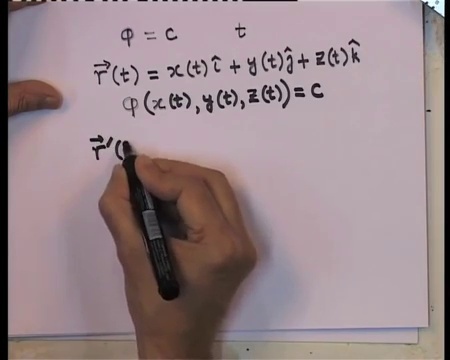 φ = c t
r⃗(t) = x(t)î + y(t)ĵ + z(t)k̂
φ(x(t), y(t), z(t)) = c
r⃗'(